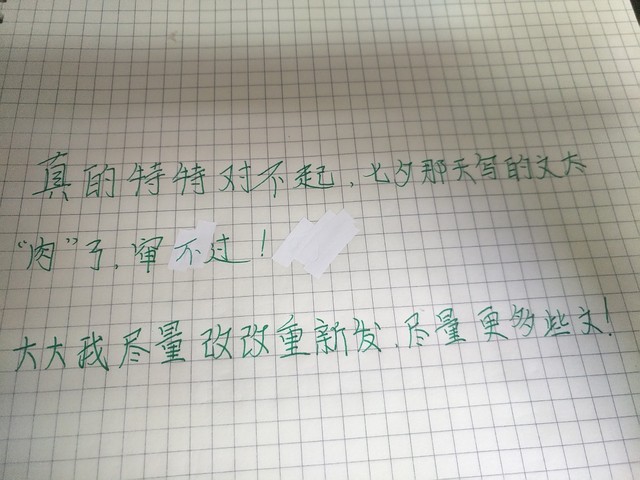 真的特特对不起，七夕那天写的文太
“肉”了，审不过！
大大我尽量改改重新发，尽量更多些文！